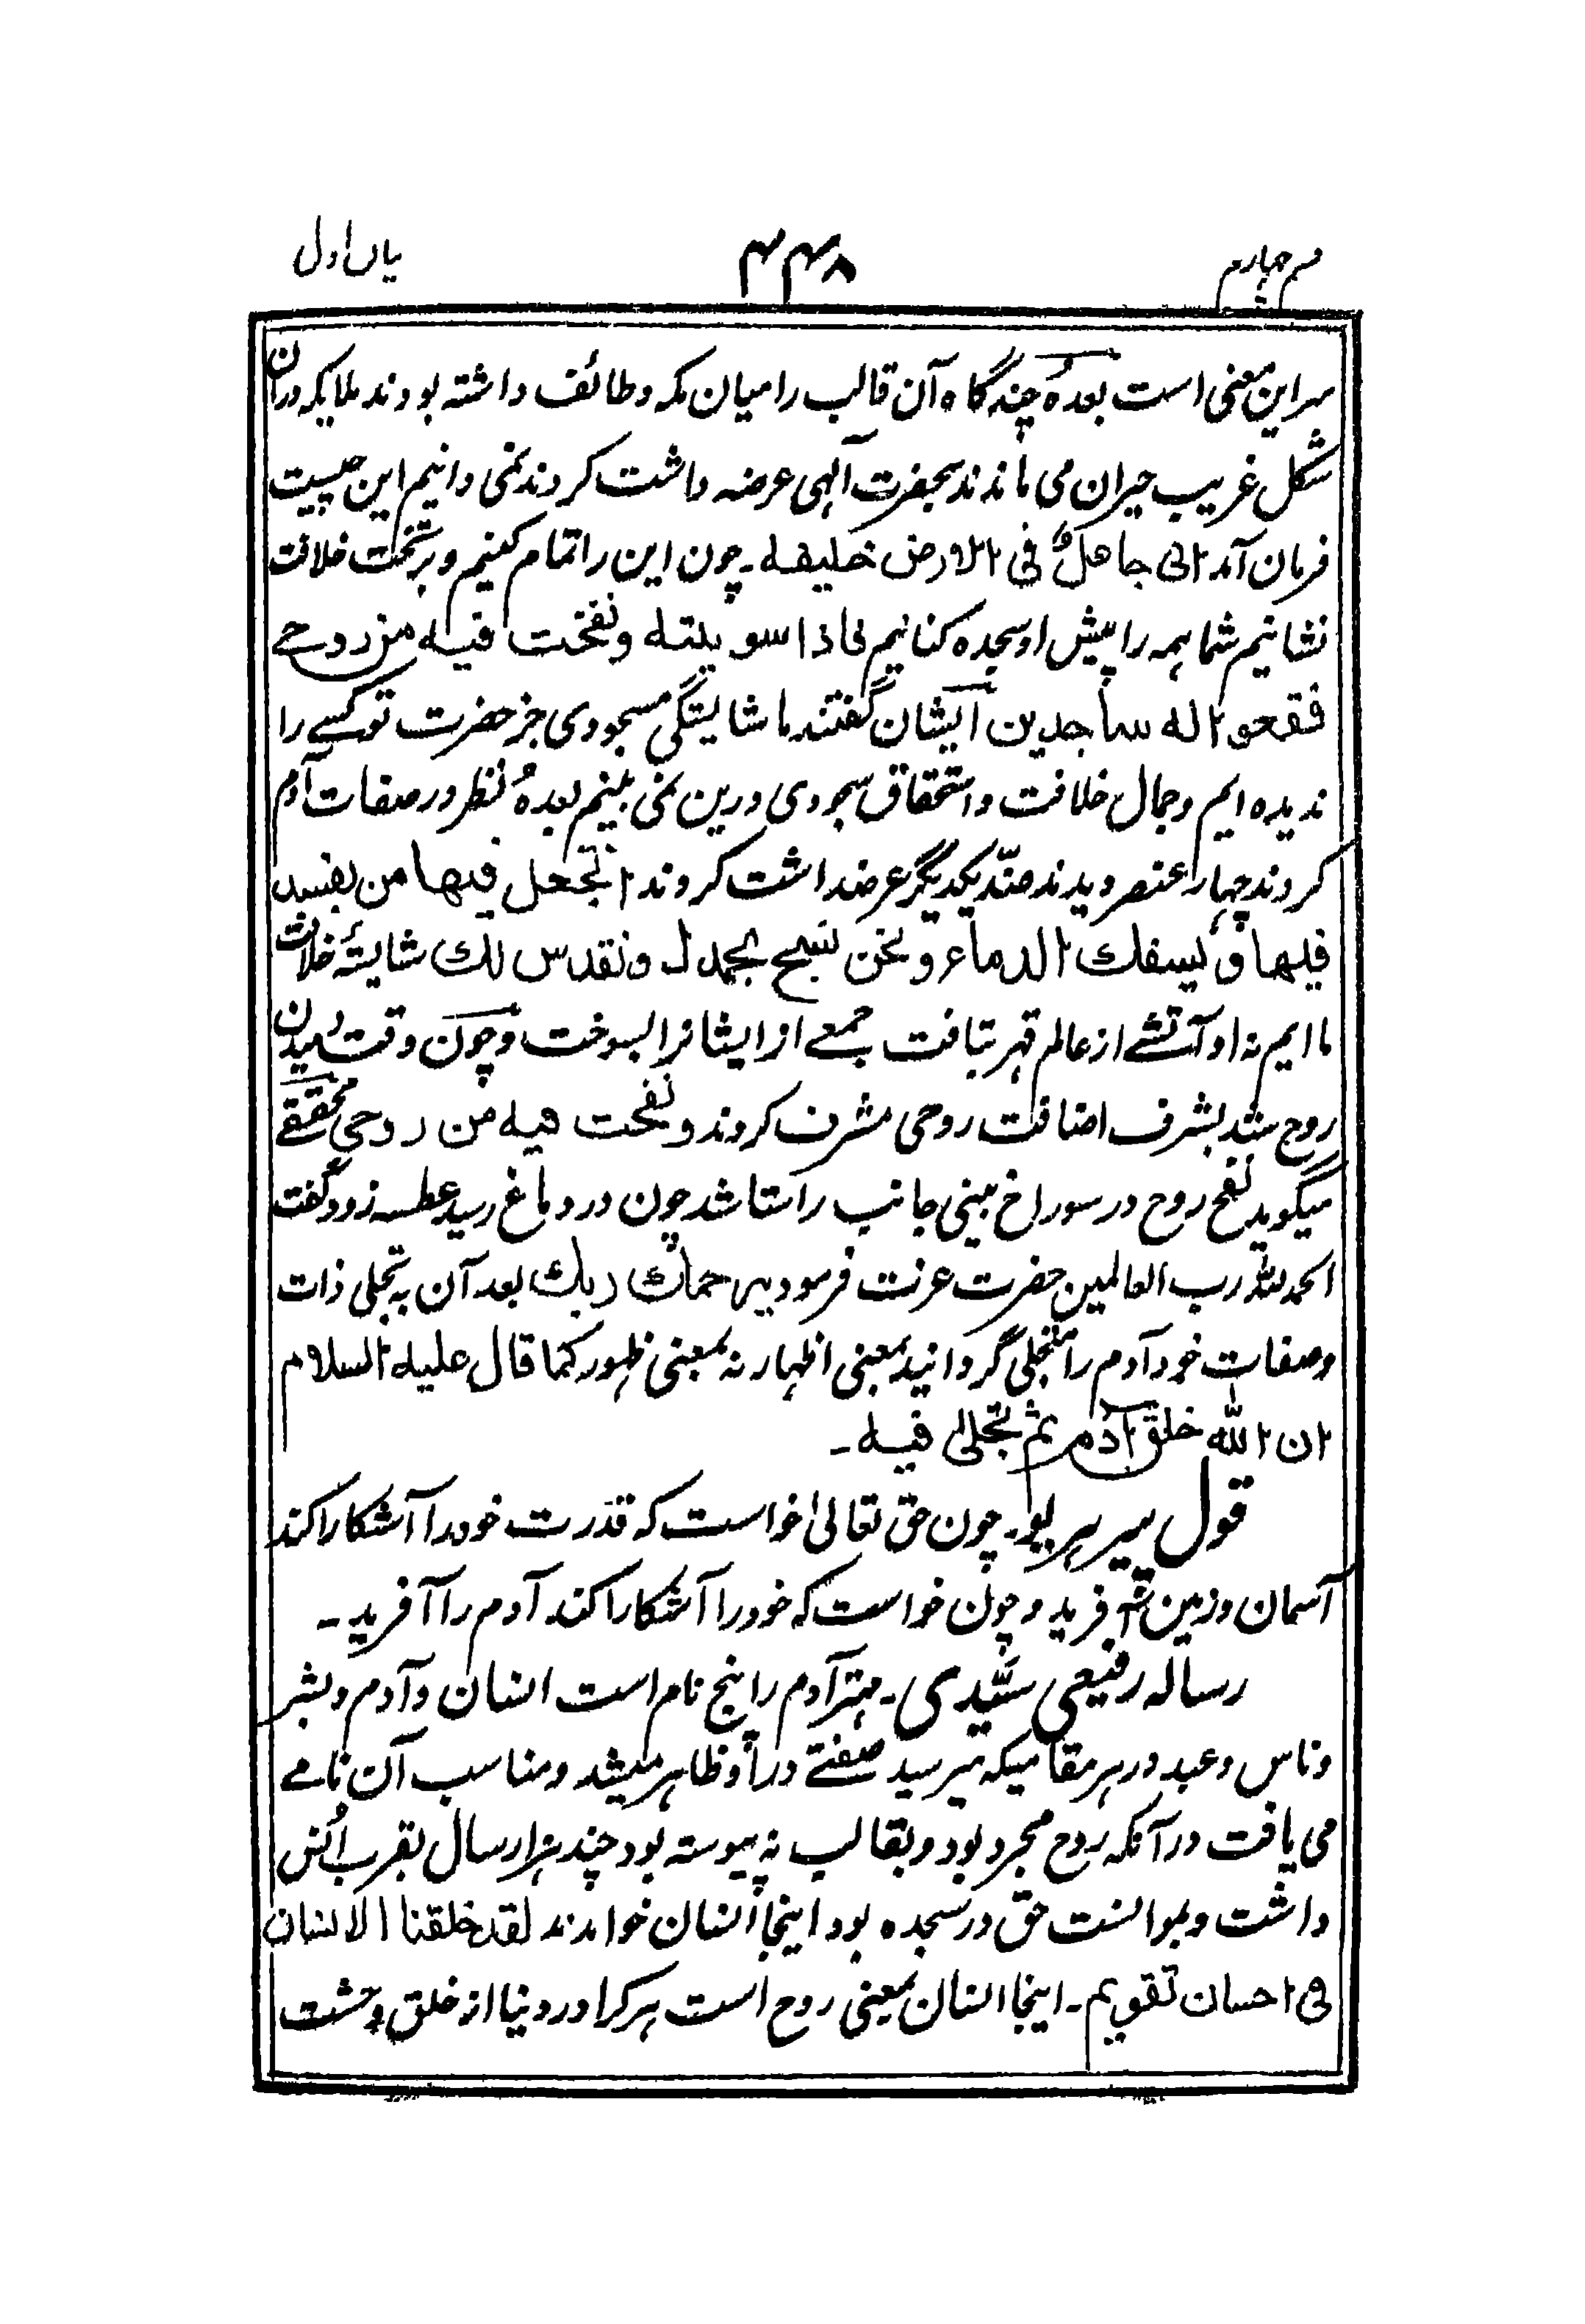 قسم چهارم ۴۴۸ بیان اول
براین معنی است بعدهٗ چند گاه آن قالب را میان مکه و طائف داشته بودند ملایکه دران
شکل غریب حیران می ماندند بحضرت آلهی عرضه داشت کردند نمی دانیم این چیست
فرمان آمد انی جاعل فی الارض خلیفه ـ چون این را تمام کنیم و بر تخت خلافت
نشانیم شما همه را پیش او سجده کنانیم فاذا سویته ونفخت فیه من روحی
فقعوا له ساجدین ایشان گفتند ما شایستگی مسجودی جز حضرت تو کسے را
ندیده ایم و جمال خلافت و استحقاق سجودی درین نمی بینیم بعدهٗ نظر در صفات آدم
کردند چهار عنصر دیدند ضدّ یکدیگر عرضداشت کردند اتجعل فیها من یفسد
فیها و یسفك الدماء و نحن نسبح بحمدك و نقدس لك شایستۂ خلافت
ما ایم نه او آتشے از عالم قهر بتافت جمعے از ایشانرا بسوخت و چون وقت رسیدن
روح شد بشرف اضافت روحی مشرف کردند و نفخت فیه من روحی محققے
میگوید نفخ روح در سوراخ بینی جانب راستا شد چون در دماغ رسید عطسه زد و گفت
الحمد لله رب العالمین حضرت عزت فرمود یرحمك ربك بعد آن به تجلی ذات
و صفات خود آدم را متجلی گردانید بمعنی اظهار نه بمعنی ظهور کما قال علیه السلام
ان الله خلق آدم ثم تجلی فیه ـ
قول سیر چون حق تعالیٰ خواست که قدرت خود را آشکارا کند
آسمان و زمین آفرید و چون خواست که خود را آشکارا کند آدم را آفرید ـ
رساله رفیعی سیّدی ـ مهتر آدم را پنج نام است انسان و آدم و بشر
و ناس و عبد در هر مقامیکه میرسید صفتے در او ظاهر میشد و مناسب آن نامے
می یافت در آنکه روح مجرد بود و بقالب نه پیوسته بود چند هزار سال بقرب اُنس
داشت و بموانست حق در سجده بود اینجا انسان خواندند لقد خلقنا الانسان
فی احسان تقویم ـ اینجا انسان بمعنی روح است هر کرا در دنیا از خلق وحشت